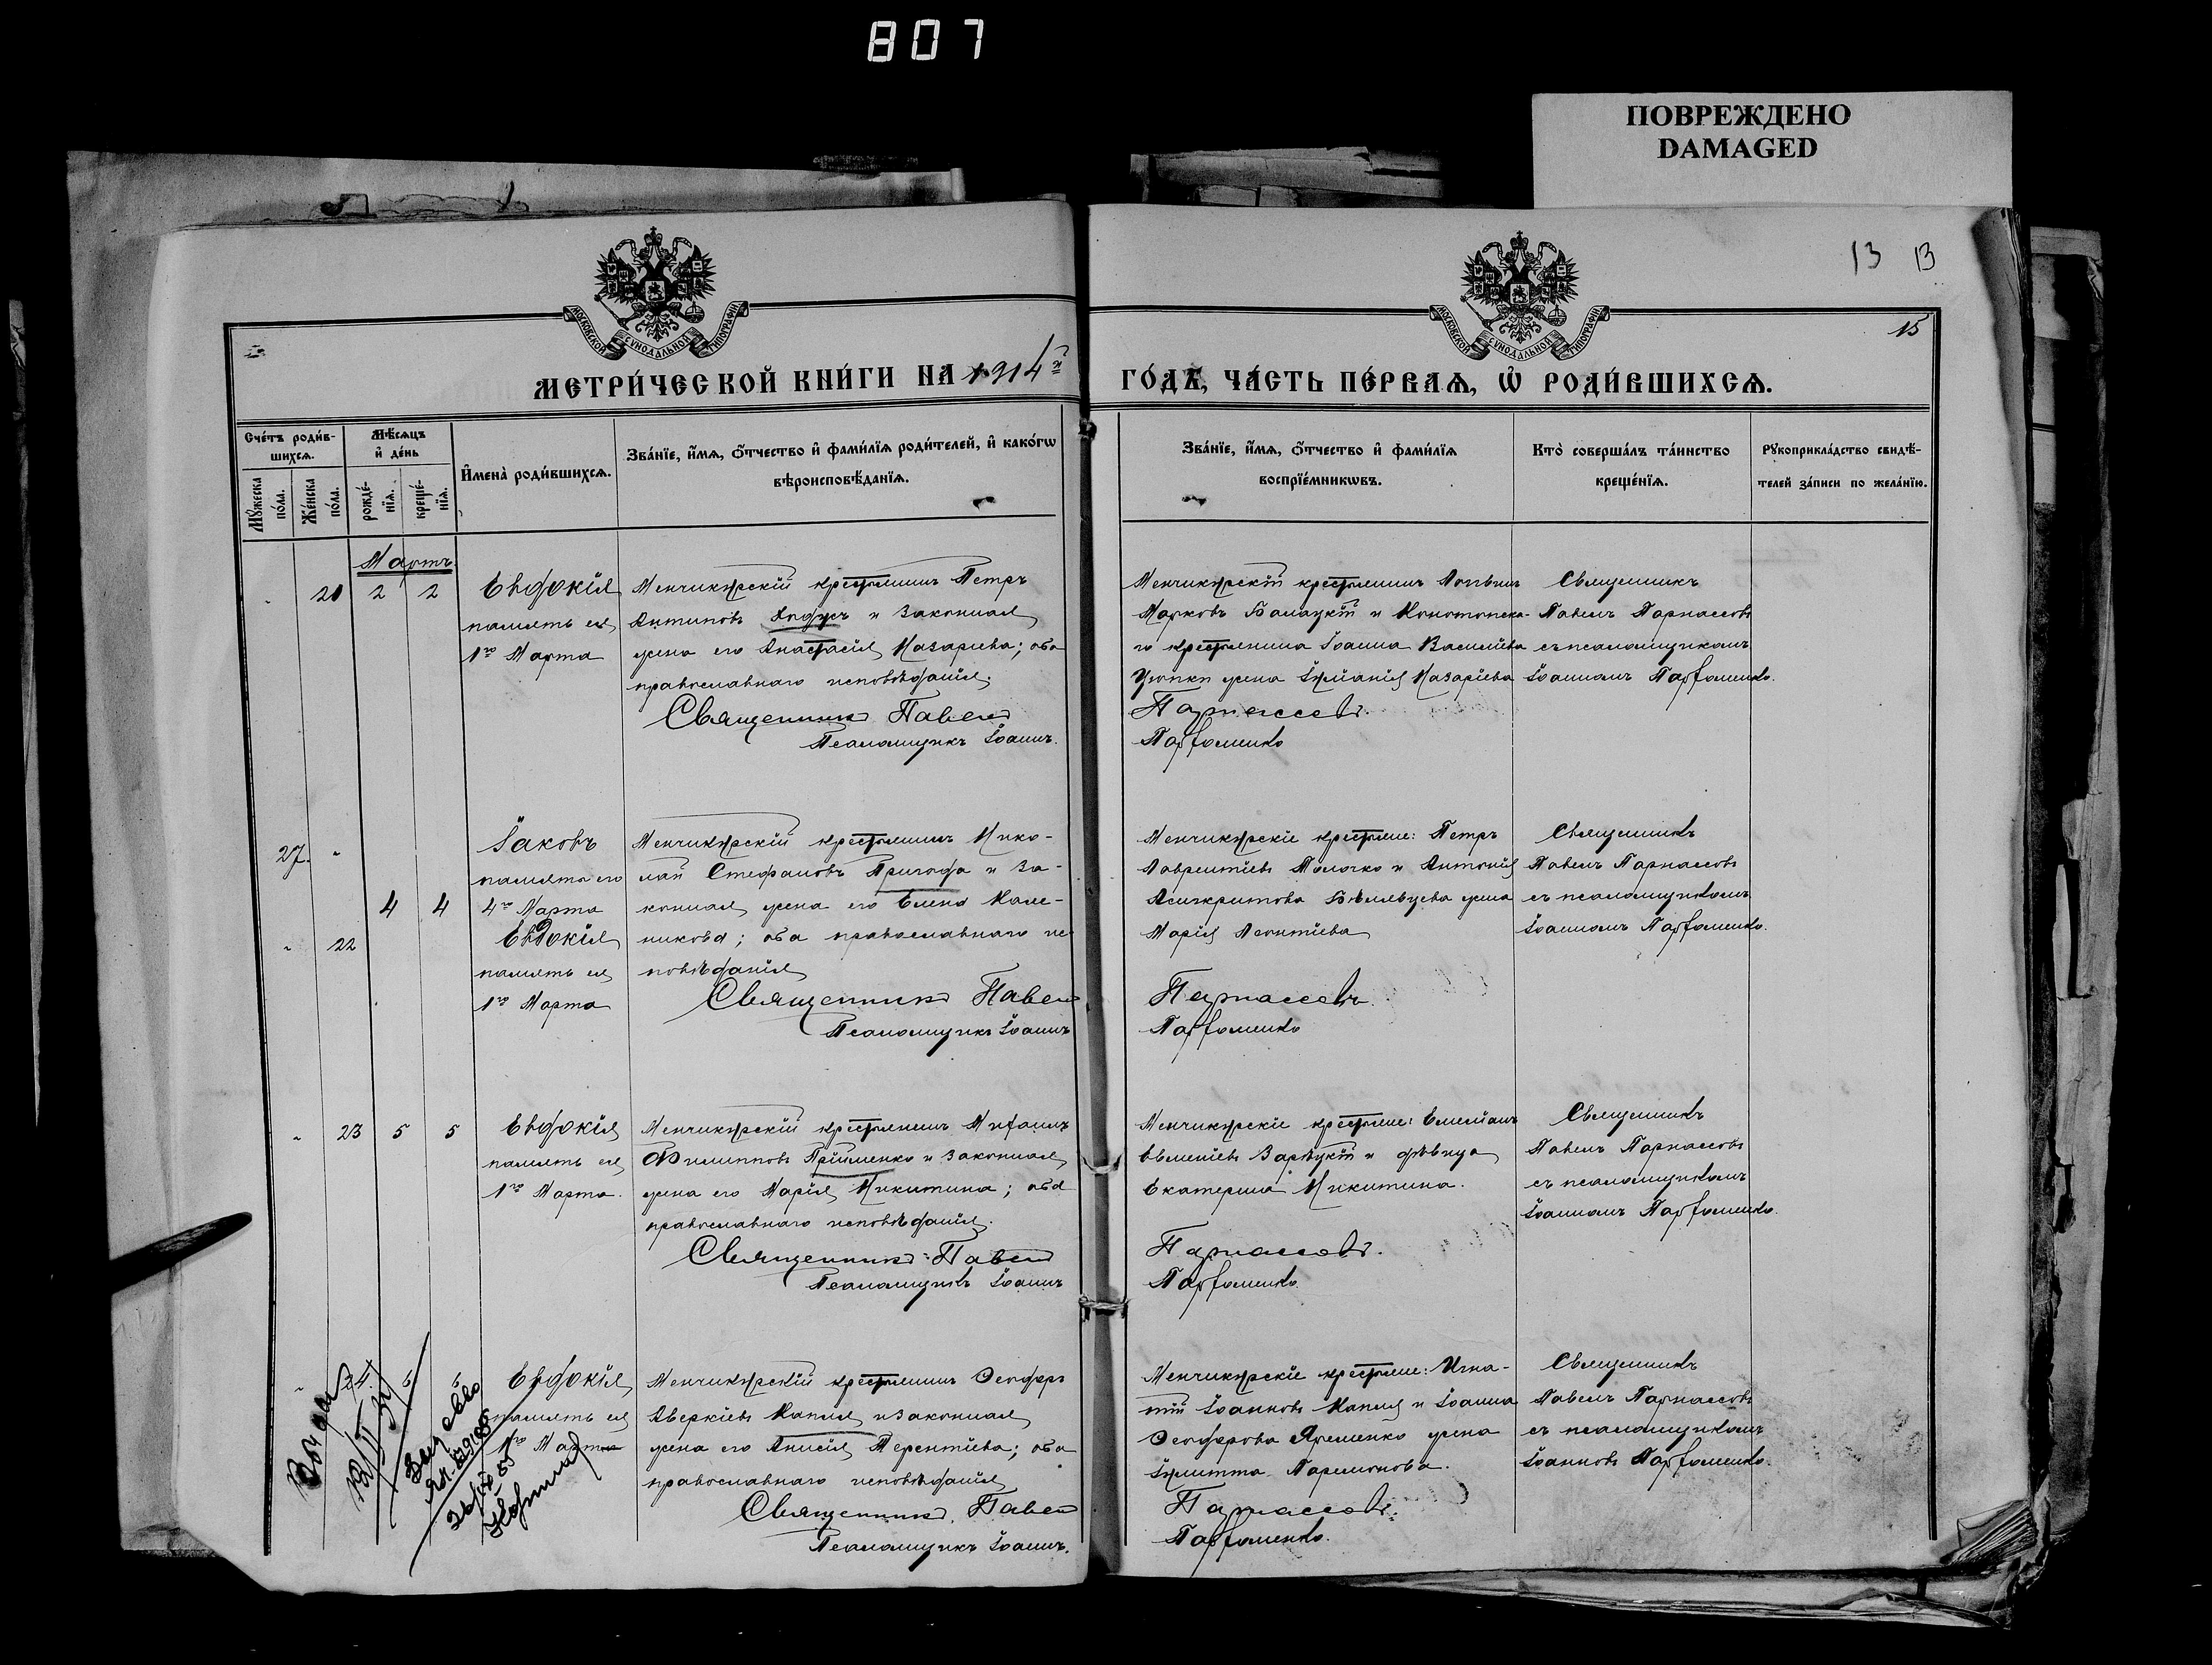 807
ПОВРЕЖДЕНО
DAMAGED
13 13
15
МОСКОВСКОЙ СУНОДАЛЬНОЙ ТИПОГРАФІИ
МОСКОВСКОЙ СУНОДАЛЬНОЙ ТИПОГРАФІИ
МЕТРИ́ЧЕСКОЙ КНИ́ГИ НА 1914й
ГО́ДЪ, ЧА́СТЬ ПЕ́РВАѦ, Ѡ҆ РОДИ́ВШИХСѦ.
Сче́тъ роди́в-
шихсѧ.
Мѣ́сѧцъ
и҆ де́нь
Мꙋ́жеска
по́ла.
Же́нска
по́ла.
рожде́-
нїѧ.
креще́-
нїѧ.
И҆мена̀ роди́вшихсѧ.
Зва́нїе, и҆́мѧ, ѻ҆́тчество и҆ фами́лїѧ роди́телей, и҆ како́гѡ
вѣроисповѣ́данїѧ.
Зва́нїе, и҆́мѧ, ѻ҆́тчество и҆ фами́лїѧ
воспрїе́мникѡвъ.
Кто̀ соверша́лъ та́инство
креще́нїѧ.
Рꙋкоприкла́дство свидѣ́-
телей за́писи по жела́нїю.
Мартъ
21 2 2
Евдокія
память ея
1го Марта
Менчикурскій крестьянинъ Петръ
Антиповъ и законная
жена его Анастасія Назаріева; оба
православнаго исповѣданія.
Священникъ Павелъ
Псаломщикъ Іоаннъ
Менчикурскій крестьянинъ Логвинъ
Марковъ Балацкій и Конотопска-
го крестьянина Іоанна Василіева
жена Іуліанія Назаріева
Парнассовъ.
Парфоменко
Священникъ
Павелъ Парнассовъ
съ псаломщикомъ
Іоанномъ Парфоменко.
27
4 4
22
Іаковъ
память его
4го Марта
Евдокія
память ея
1го Марта
Менчикурскій крестьянинъ Нико-
лай Стефановъ Пригода и за-
конная жена его Елена Кале-
никова; оба православнаго ис-
повѣданія
Священникъ Павелъ
Псаломщикъ Іоаннъ
Менчикурскіе крестьяне: Петръ
Лаврентіевъ Толочко и Антонія
Асигкритова жена
Марія Леонтіева
Парнассовъ.
Парфоменко
Священникъ
Павелъ Парнассовъ
съ псаломщикомъ
Іоанномъ Парфоменко.
23 5 5
Евдокія
память ея
1го Марта.
Менчикурскій крестьянинъ Митфанъ
Филипповъ Прійменко и законная
жена его Марія Никитина; оба
православнаго исповѣданія.
Священникъ Павелъ
Псаломщикъ Іоаннъ
Менчикурскіе крестьяне: Емеліанъ
Евменіевъ Зарѣцкій и дѣвица
Екатерина Никитина.
Парнассовъ.
Парфоменко.
Священникъ
Павелъ Парнассовъ
съ псаломщикомъ
Іоанномъ Парфоменко.
24 6 6
Евдокія
память ея
1го Марта
Менчикурскій крестьянинъ Ѳеодоръ
Аверкіевъ Капля и законная
жена его Анисія Терентіева; оба
православнаго исповѣданія
Священникъ Павелъ
Псаломщикъ Іоаннъ.
Менчикурскіе крестьяне: Игна-
тій Іоанновъ Капля и Іоанна
Ѳеодорова Яременко жена
Іулитта Парамонова.
Парнассовъ.
Парфоменко.
Священникъ
Павелъ Парнассовъ
съ псаломщикомъ
Іоанновъ Парфоменко.